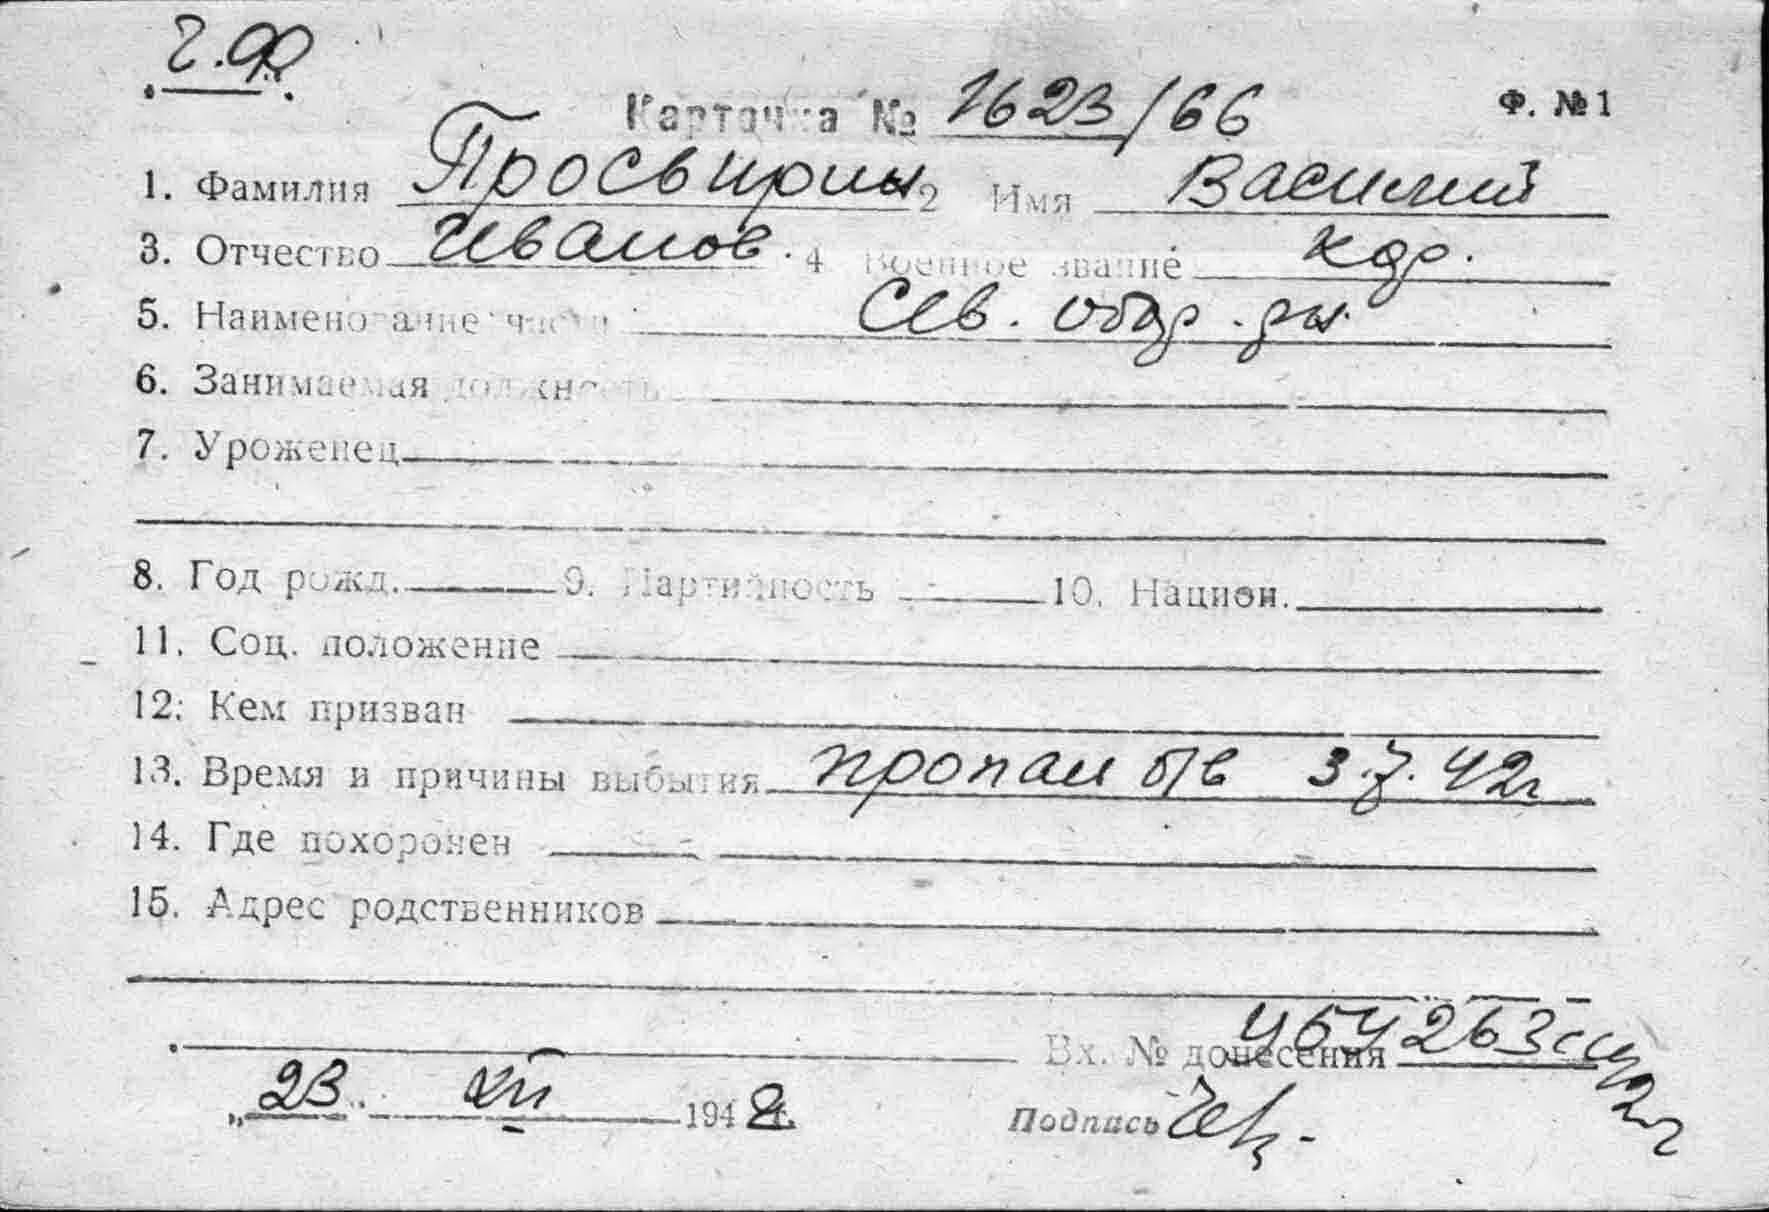 Ч.Ф.
Карточка № 1623/66 Ф. №1
1. Фамилия Просвирин 2 Имя Василий
3. Отчество Иванов. 4 Военное звание кдр.
5. Наименование части Сев. обор. р-н
6. Занимаемая должность
7. Уроженец
8. Год рожд. 9. Партийность 10. Национ.
11. Соц. положение
12. Кем призван
13. Время и причины выбытия пропал б/в 3.7.42г
14. Где похоронен
15. Адрес родственников
Вх. № донесения
„23" XII 1942г.
Подпись